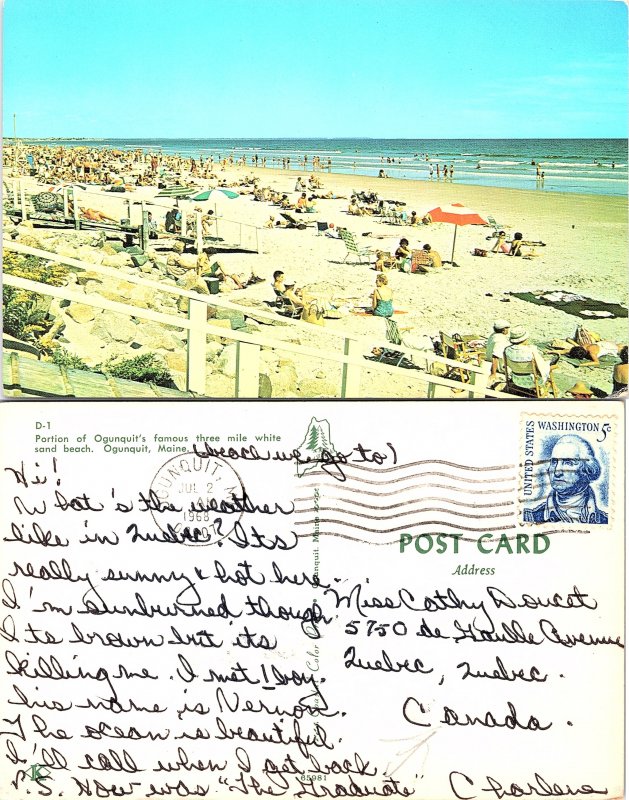 D-1
Portion of Ogunquit's famous three mile white
sand beach. Ogunquit, Maine.
(beach we go to)
Hi!
What's the weather
like in Quebec? Its
really sunny & hot here.
I'm sunburned though
I to brown but its
killing me. I met 1 boy.
his name is Vernon.
The ocean is beautiful.
I'll call when I get back
P.S. How was "The Graduate" Charlene
OGUNQUIT,
JUL 2
AM
1968
UNITED STATES
WASHINGTON 5c
POST CARD
Address
Miss Cathy Doucet
5750 de Gaulle Avenue
Quebec, Quebec.
Canada.
K
85981